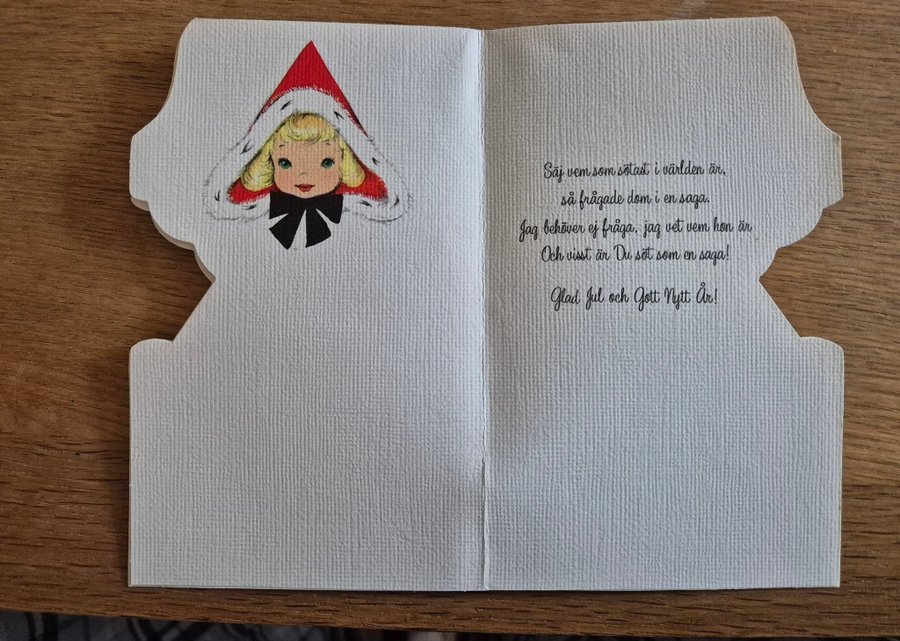 Säj vem som sötast i världen är,
så frågade dom i en saga.
Jag behöver ej fråga, jag vet vem hon är
Och visst är Du söt som en saga!
Glad Jul och Gott Nytt År!